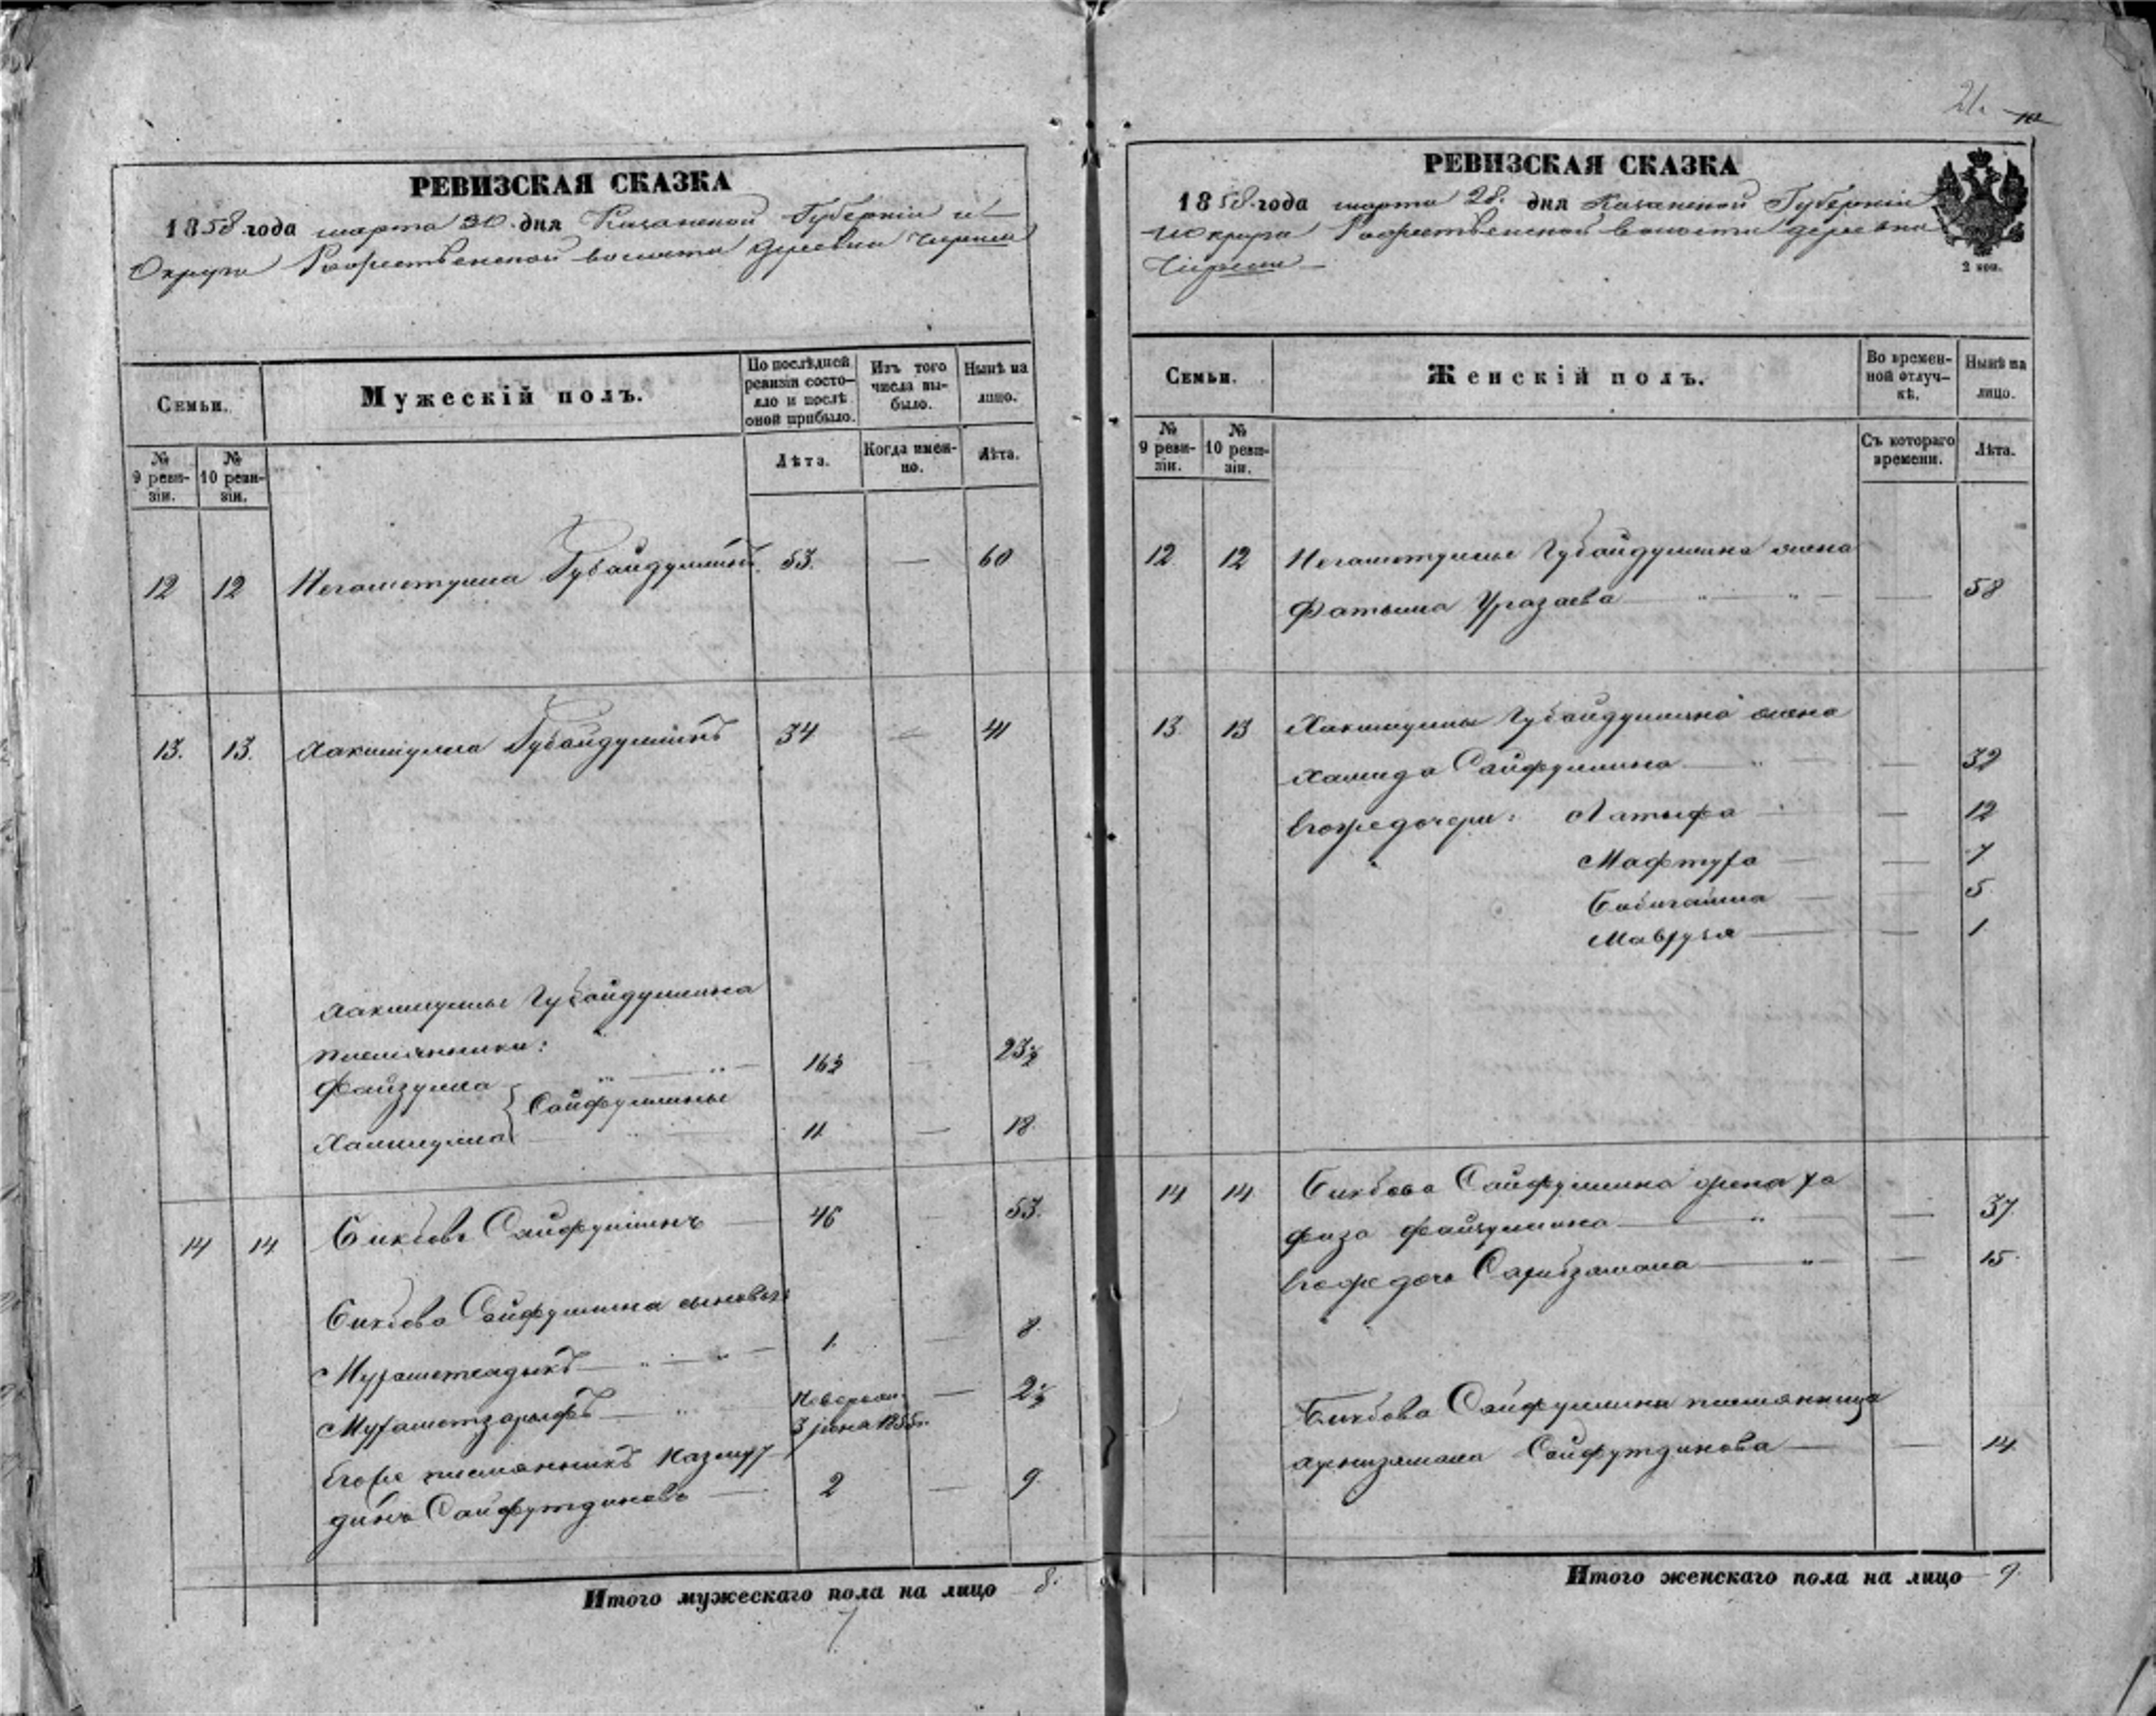 21.
РЕВИЗСКАЯ СКАЗКА
1858 года марта 30 дня Казанской Губерніи и
Округа Рождественской волости деревни Чирши
Семьи.
Мужескій полъ.
По послѣдней ревизіи состояло и послѣ оной прибыло.
Изъ того числа выбыло.
Нынѣ на лицо.
№ 9 ревизіи.
№ 10 ревизіи.
Лѣта.
Когда именно.
Лѣта.
12 12 Негаметулла Губайдуллинъ 53. — 60
13. 13. Хакимулла Губайдуллинъ 34 — 41
Хакимуллы Губайдуллина
племянники:
Файзулла 16½ — 23½
Сайфуллины
Халиулла 11 — 18
14 14 Бикбовъ Сайфуллинъ — 46 — 53.
Бикбова Сайфуллина сыновья
Мухаметсадыкъ — 1. — 8.
Мухаметзарыфъ — Новорож. — 2½
3 іюня 1855 г.
Егоже племянникъ Казмух-
динъ Сайфутдиновъ — 2 — 9.
Итого мужескаго пола на лицо 8.
РЕВИЗСКАЯ СКАЗКА
1858 года марта 28. дня Казанской Губерніи
и округа Рождественской волости деревни
Чирши
2 коп.
Семьи.
Женскій полъ.
Во временной отлучкѣ.
Нынѣ на лицо.
№ 9 ревизіи.
№ 10 ревизіи.
Съ котораго времени.
Лѣта.
12 12 Негаметуллы Губайдуллина жена
Фатыма Уразаева — — 58
13 13 Хакимуллы Губайдуллина жена
Хамида Сайфуллина — — 32
Егоже дочери: Латыфа — — 12
Мафтуха — — 7
Бибигайша — — 5.
Мавруза — — 1
14 14 Бикбова Сайфуллина жена Ха
физа Файзуллина — — 37.
Егоже дочь Сахибзямала — — 15.
Бикбова Сайфуллина племянница
Сайфутдинова — — 14.
Итого женскаго пола на лицо 9.